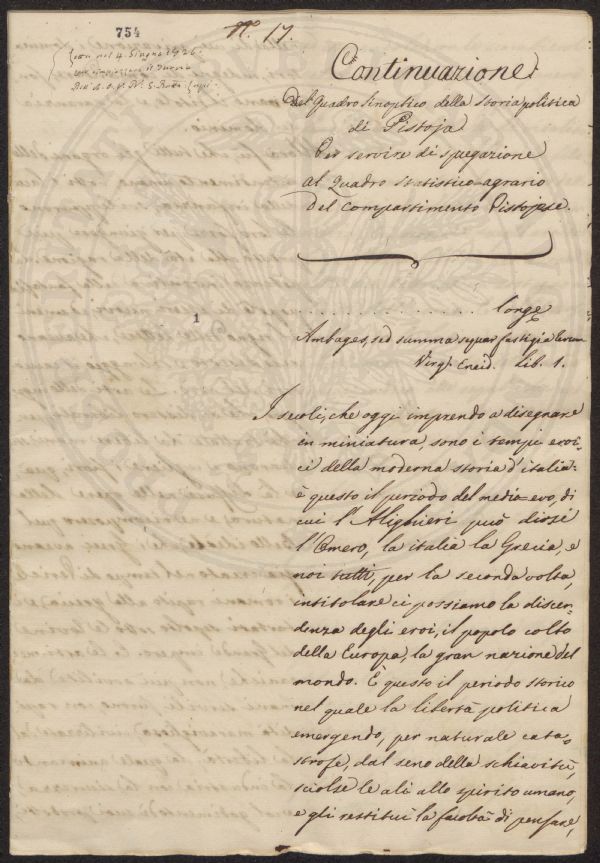 754
N.° 17.
Continuazione
del Quadro sinoptico della storia politica
di Pistoja
Per servire di spegazione
al Quadro statistico-agrario
Del Compartimento Pistojese.
1
. . . . . . . . . . . . . . . . . . longe
Ambages, sed summa sequar fastigia rerum
Virg. Eneid. Lib. 1.
I secoli, che oggi imprendo a disegnare
in miniatura, sono i tempi eroi-
ci della moderna storia d'italia:
è questo il periodo del medio-evo, di
cui l'Alighieri può dirsi
l'Omero, la italia la Grecia, e
noi tutti, per la seconda volta,
intitolare ci possiamo la discen-
denza degli eroi, il popolo colto
della Europa, la gran nazione del
mondo. È questo il periodo storico
nel quale la libertà politica
emergendo, per naturale cata-
strofe, dal seno della schiavitù,
sciolse le ali allo spirito umano,
e gli restituì la facoltà di pensare,